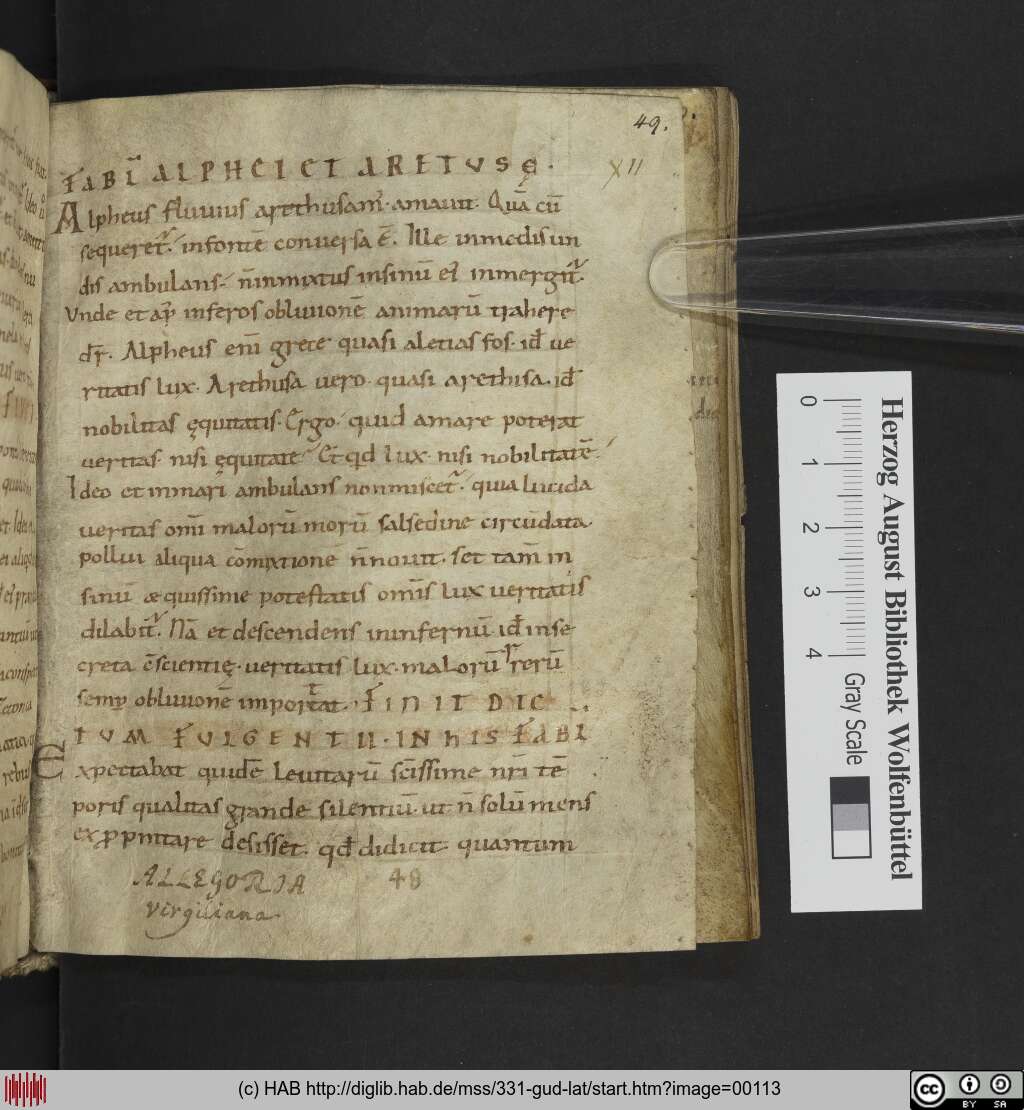 49.
XII
FABL̄ ALPHEI ET ARETUSĘ.
Alpheus fluuius arethusam. amauit. Quā cū
sequeret. infontē conuersa ē. Ille inmediis un
dis ambulans. ñinmixtus insinū ei inmergit.
Vnde et ap inferos obliuionē animarū trahere
dr̄. Alpheus eni grece quasi aletias fos. id ue
ritatis lux. Arethusa uero. quasi arethisa. id
nobilitas ęquitatis. Ergo. quid amare poterat
ueritas. nisi ęquitatē. Et qd lux. nisi nobilitatē.
Ideo et inmari ambulans nonmiscet. quia lucida
ueritas omi malorū morū salsedine circūdata
pollui aliqua cōmixtione ñnouit. set tam in
sinū æquissime potestatis om̄is lux ueritatis
dilabit. Nā et descendens ininfernū. id inse
creta c̄scientię. ueritatis lux. malorū rerū
semp obliuionē importat. FINIT DIC
TUM FULGENTII. IN HIS FABL
Expectabat quidē Leuitarū sc̄issime nr̄i tē
poris qualitas grande silentiū. ut ñ solū mens
expprmtare desisset. qd didicit. quantum
ALLEGORIA 48
Virgiliana.
Herzog August Bibliothek Wolfenbüttel
0 1 2 3 4 Gray Scale
(c) HAB http://diglib.hab.de/mss/331-gud-lat/start.htm?image=00113
cc BY SA